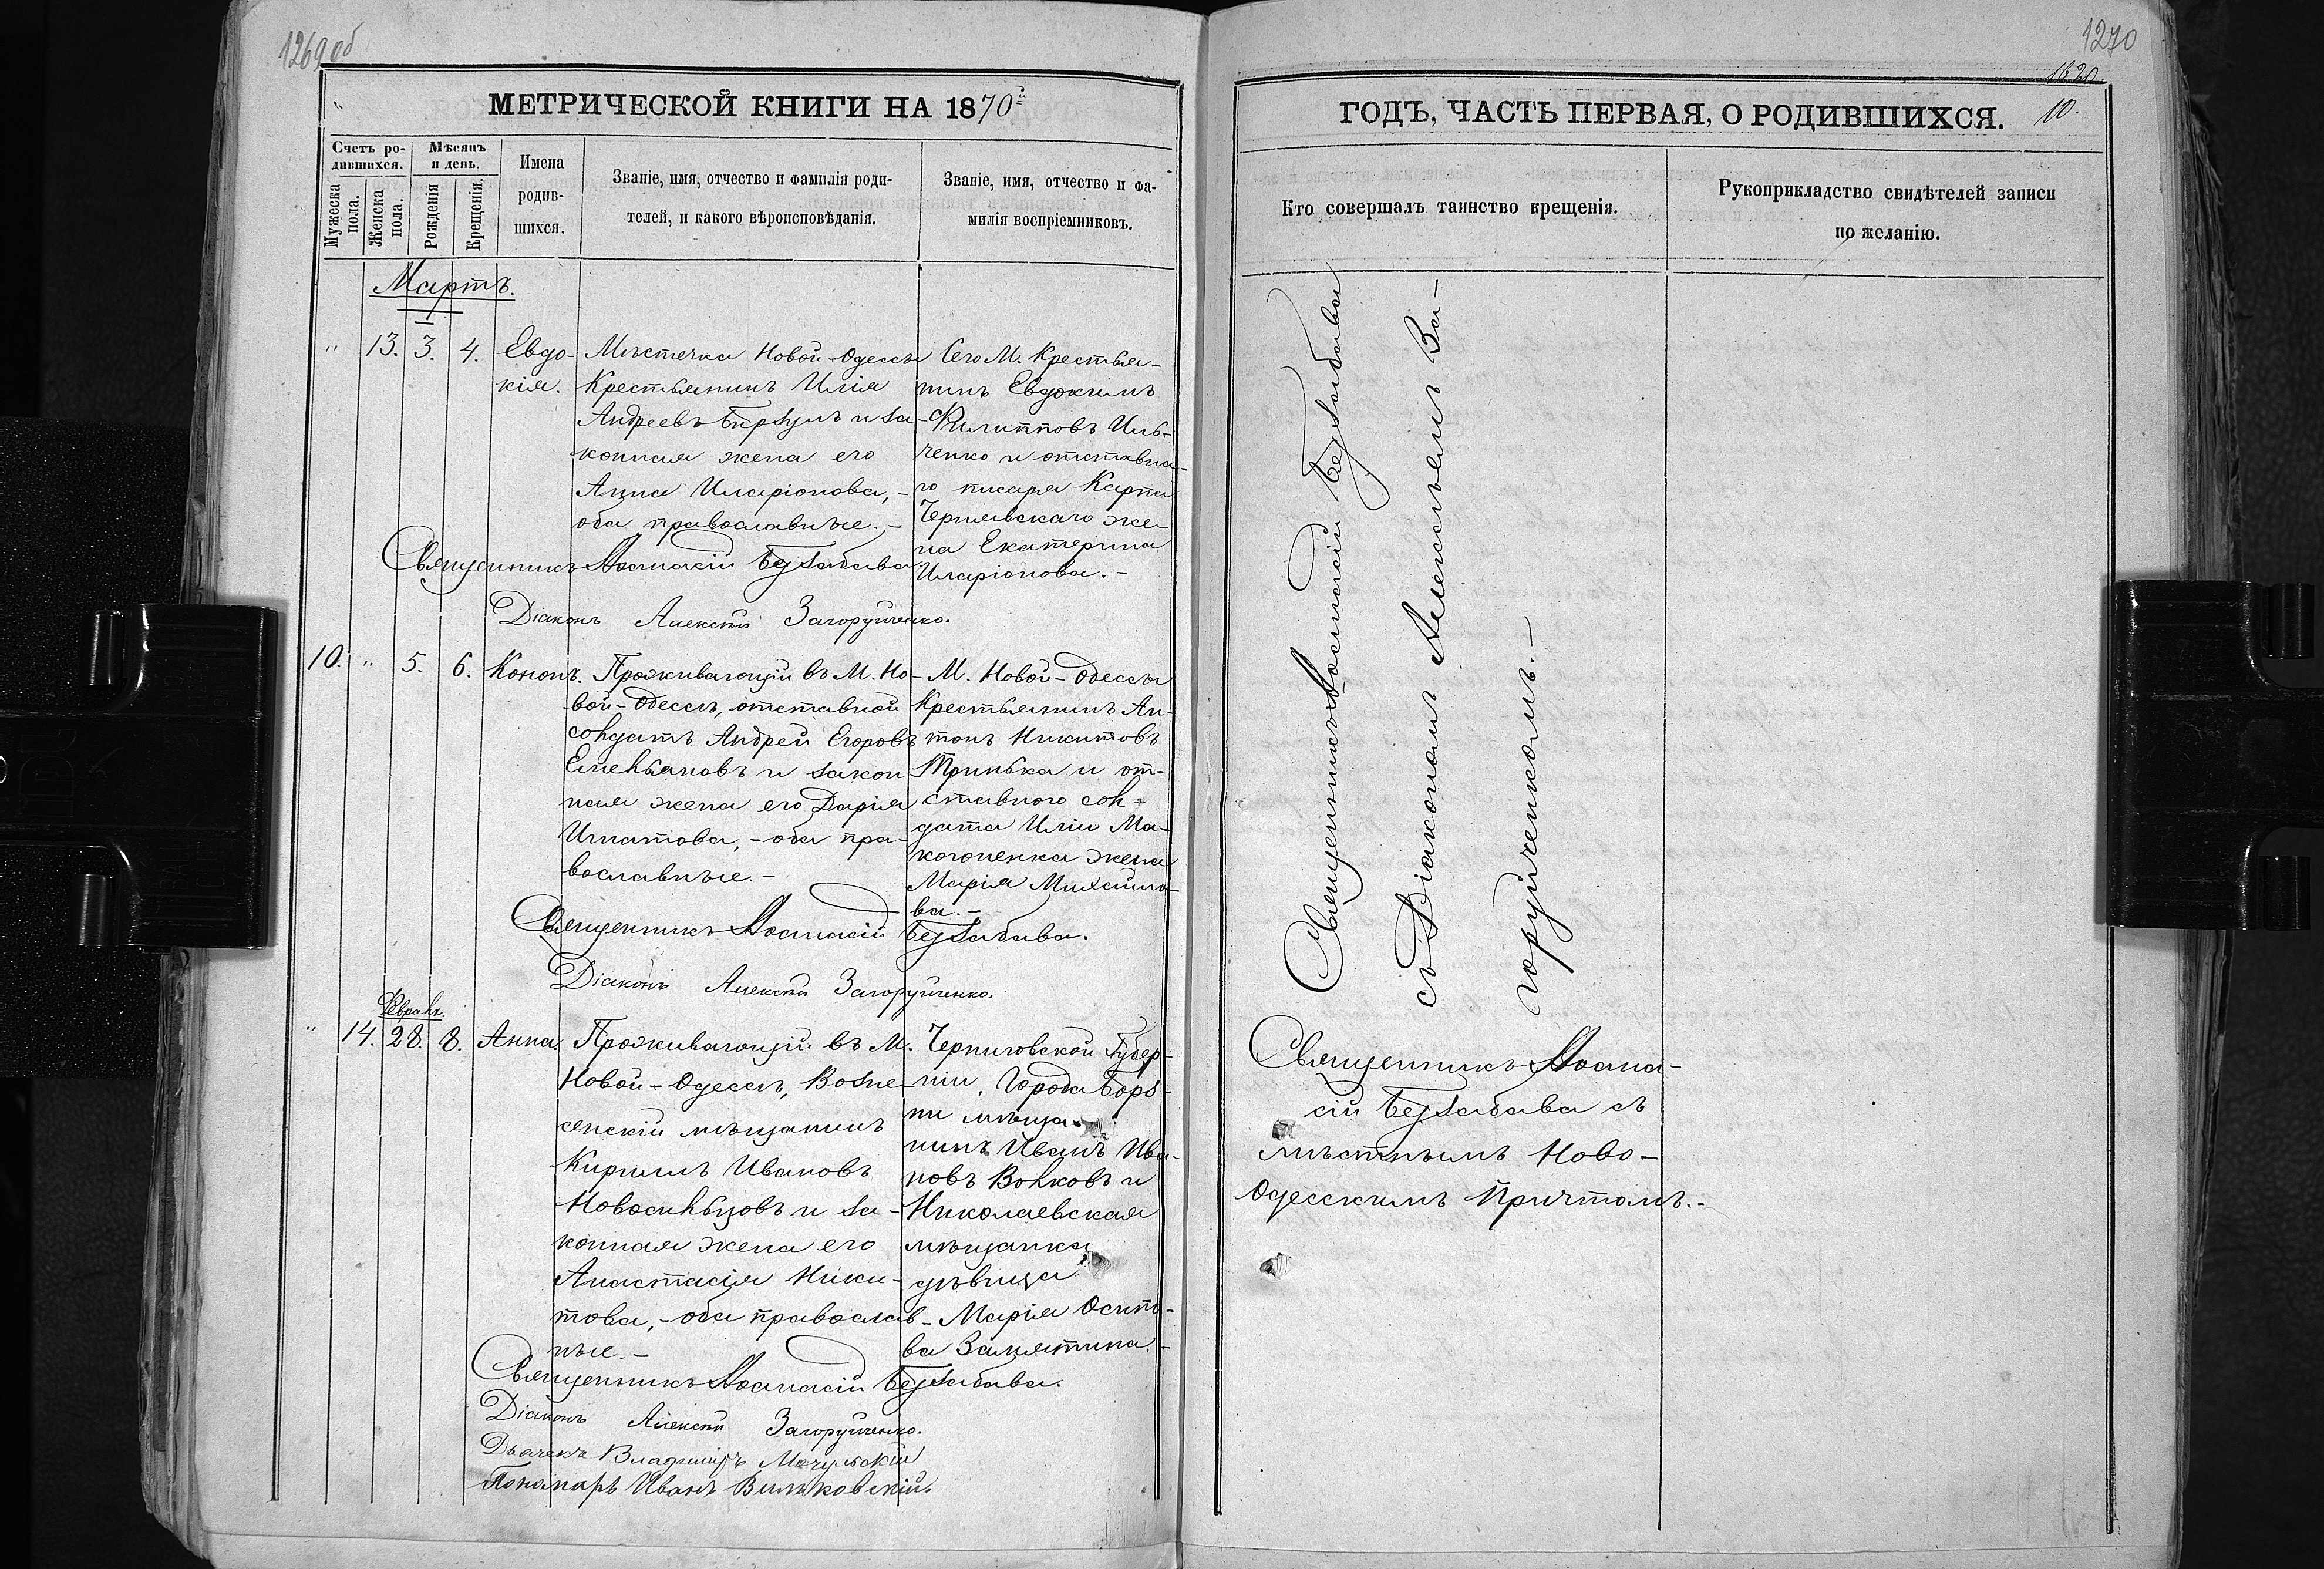 1269об
МЕТРИЧЕСКОЙ КНИГИ НА 1870й
Счетъ ро-
дившихся.
Мѣсяцъ
и день.
Мужеска
пола.
Женска
пола.
Рожденія
Крещенія.
Имена
родив-
шихся.
Званіе, имя, отчество и фамилія роди-
телей, и какого вѣроисповѣданія.
Званіе, имя, отчество и фа-
милія воспріемниковъ.
Мартъ.
" 13. 3. 4.
Евдо-
кія.
Мѣстечка Новой-Одессы
Крестьянинъ Илія
Андреевъ Бирзулъ и за-
конная жена его
Анна Иларіонова,-
оба православные.-
Сего М. Крестья-
нинъ Евдокимъ
Филипповъ Иль-
ченко и отставна-
го писаря Карпа
Чернявскаго же-
на Екатерина
Иларіонова.-
Священникъ Аѳанасій Беззабава.
Діаконъ Алексѣй Загоруйченко.
10. " 5. 6.
Кононъ.
Проживающій въ М. Но-
вой-Одессѣ, отставной
солдатъ Андрей Егоровъ
Емельяновъ и закон
ная жена его Дарія
Игнатова,-оба пра-
вославные.-
М. Новой-Одессы
Крестьянинъ Ан-
тонъ Никитовъ
Гринька и от-
ставного сол-
дата Иліи Ма-
когоненка жена
Марія Михайло-
ва.-
Священникъ Аѳанасій Беззабава.
Діаконъ Алексѣй Загоруйченко.
Февраль.
" 14. 28. 8.
Анна.
Проживающій въ М.
Новой-Одессѣ, Возне-
сенскій мѣщанинъ
Кириллъ Ивановъ
Новосильцовъ и за-
конная жена его
Анастасія Ники-
това,-оба православ-
ные.-
Черниговской Губер-
ніи, Города Борз-
ни мѣща-
нинъ Иванъ Ива-
новъ Волковъ и
Николаевская
мѣщанка
дѣвица
Марія Осипо-
ва Замятина.-
Священникъ Аѳанасій Беззабава.
Діаконъ Алексѣй Загоруйченко.
Дьячекъ Владиміръ Мачульскій
Пономарь Иванъ Вильковскій.
1270
10.
ГОДЪ, ЧАСТЬ ПЕРВАЯ, О РОДИВШИХСЯ.
Кто совершалъ таинство крещенія.
Рукоприкладство свидѣтелей записи
по желанію.
Священникъ Аѳанасій Беззабава
съ Діакономъ Алексѣемъ За-
горуйченкомъ.-
Священникъ Аѳана-
сій Беззабава съ
мѣстнымъ Ново-
Одесскимъ Причтомъ.-